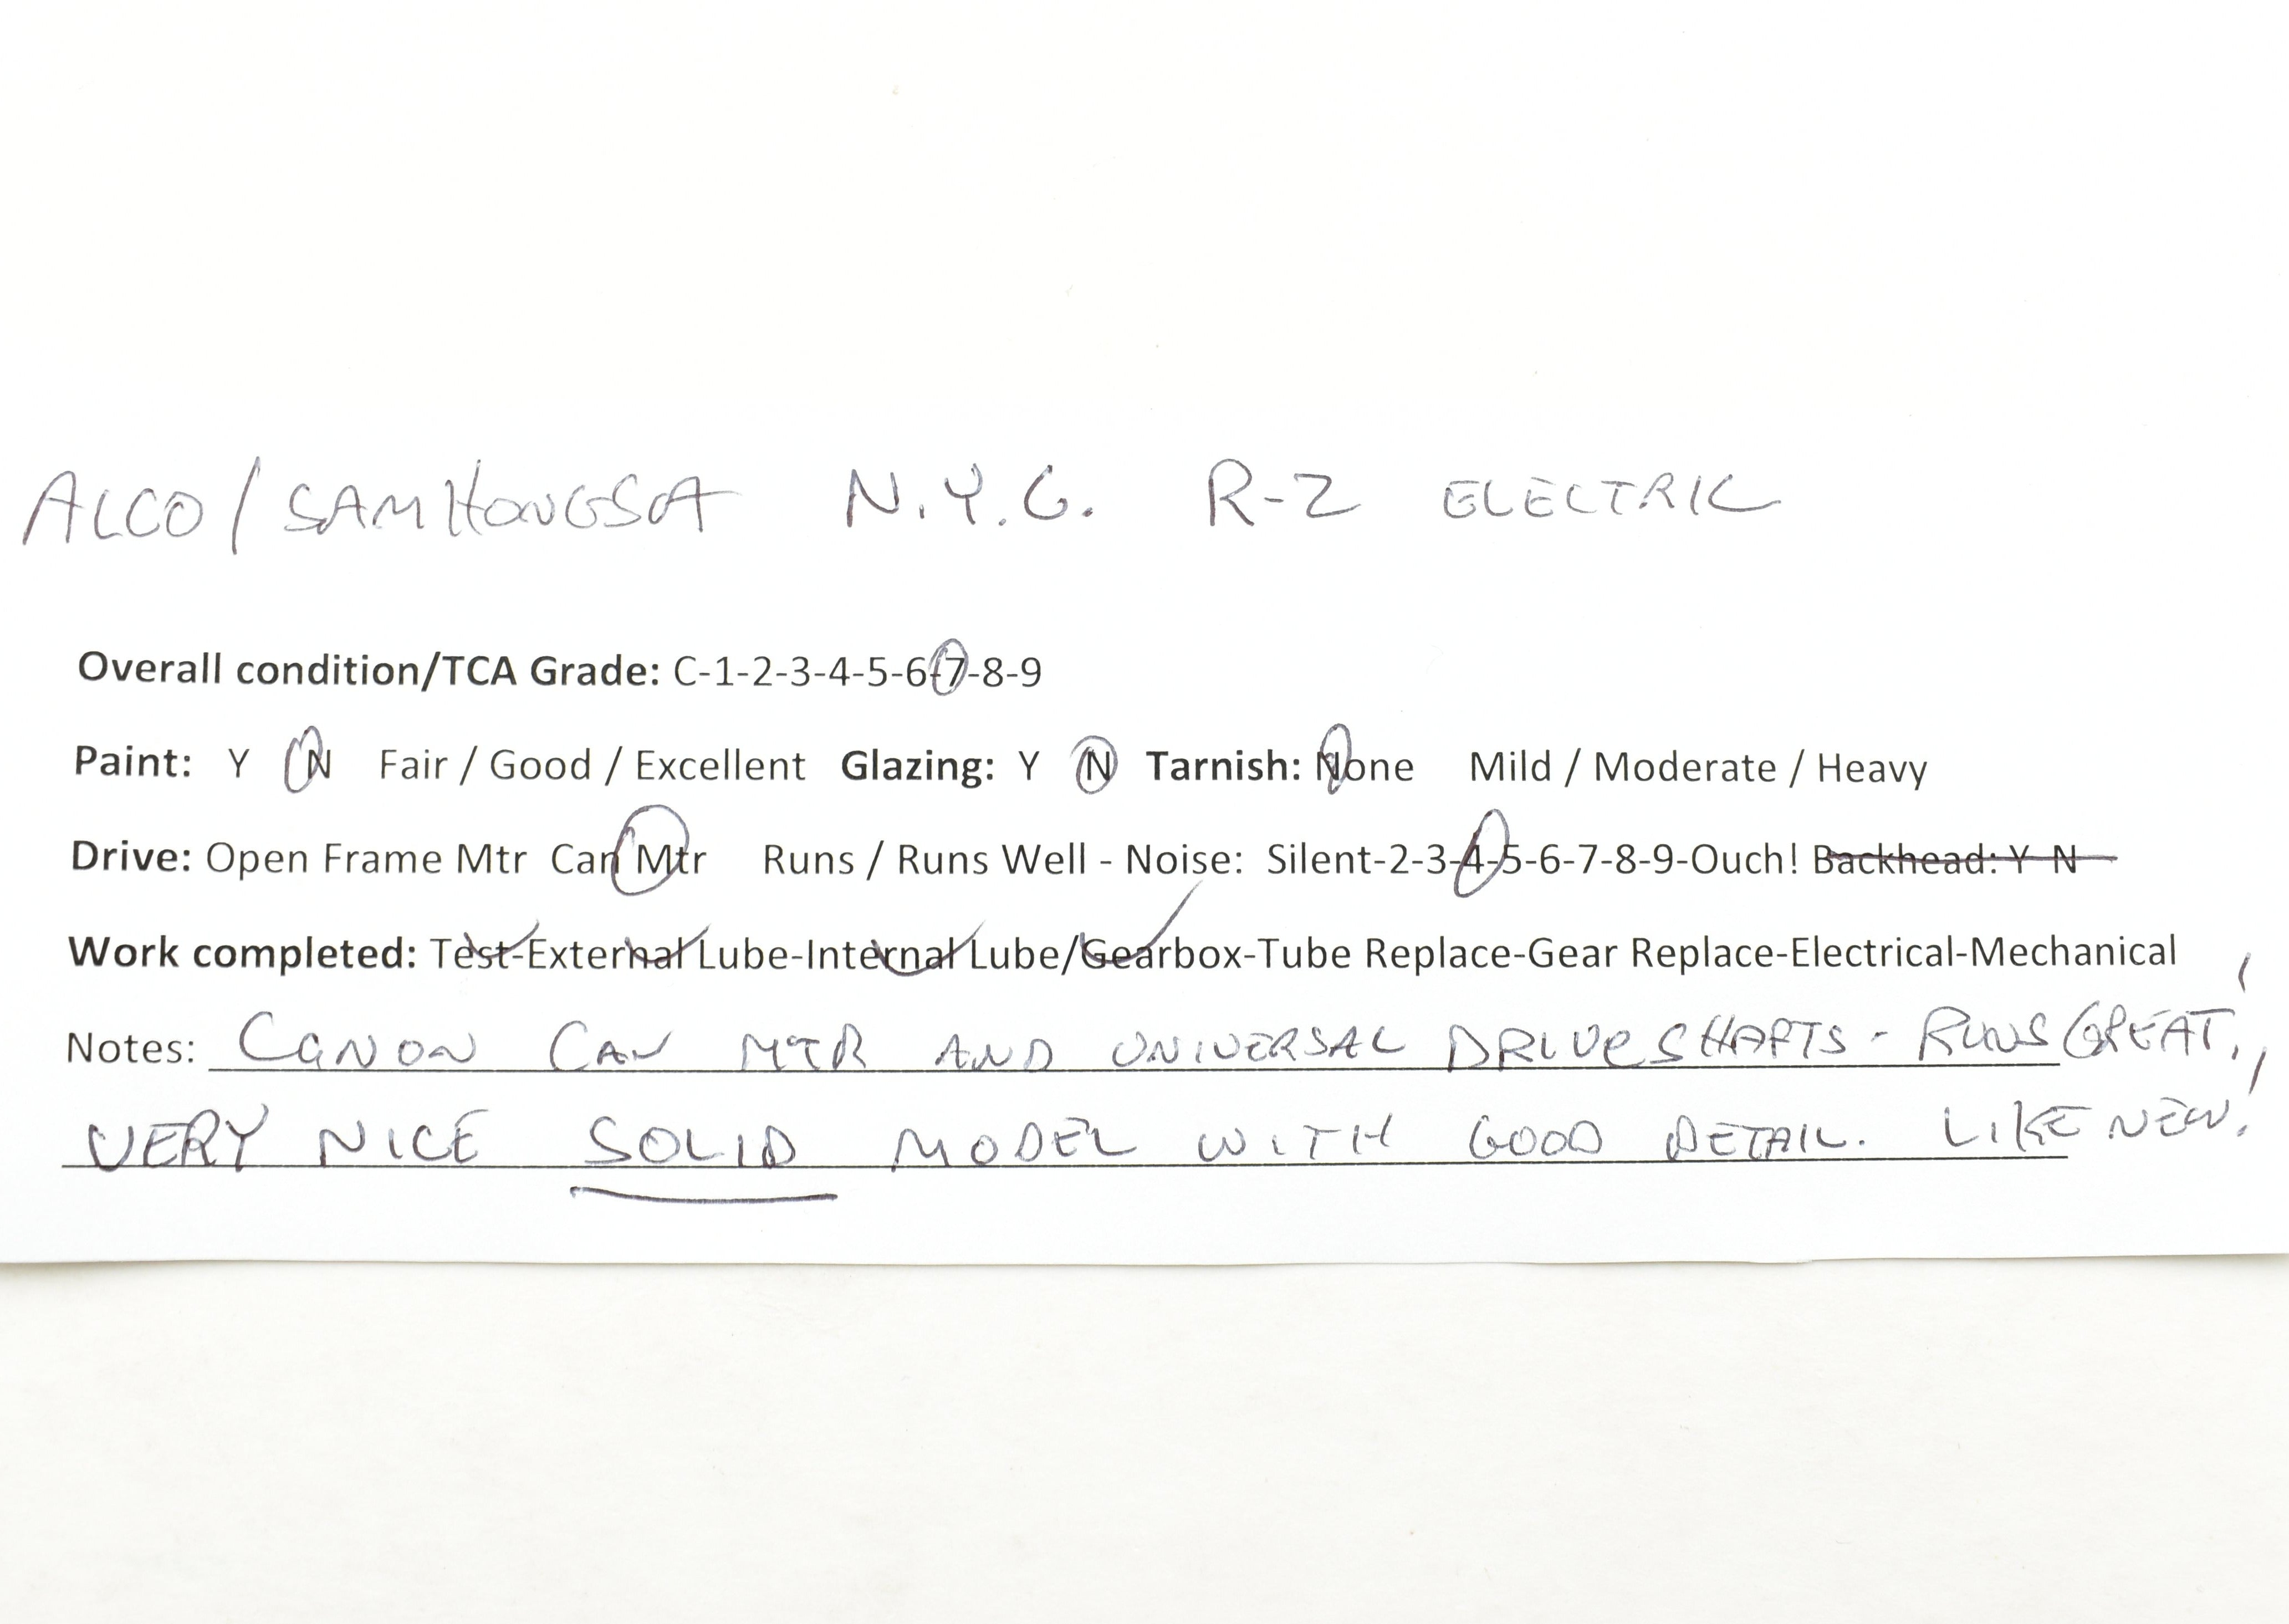 ALCO/SAMHONGSA N.Y.C. R-2 ELECTRIC
Overall condition/TCA Grade: C-1-2-3-4-5-6-7-8-9
Paint: Y N Fair / Good / Excellent Glazing: Y N Tarnish: None Mild / Moderate / Heavy
Drive: Open Frame Mtr Can Mtr Runs / Runs Well - Noise: Silent-2-3-4-5-6-7-8-9-Ouch! Backhead: Y N
Work completed: Test-External Lube-Internal Lube/Gearbox-Tube Replace-Gear Replace-Electrical-Mechanical
Notes: CANON CAN MTR AND UNIVERSAL DRIVESHAFTS - RUNS GREAT!
VERY NICE SOLID MODEL WITH GOOD DETAIL. LIKE NEW!